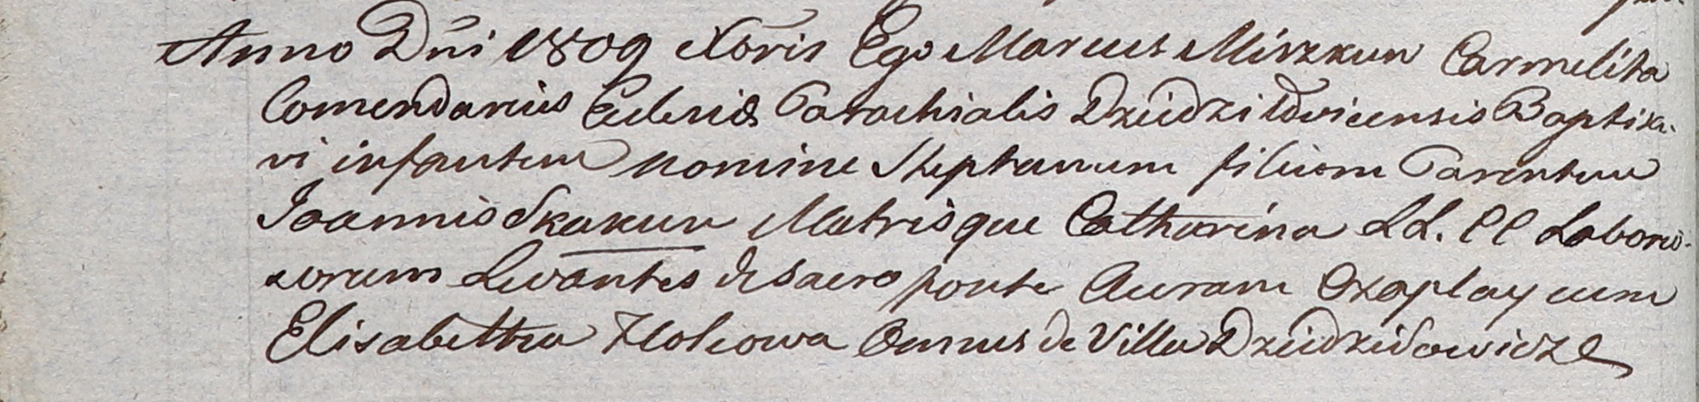 Anno Dni 1809 Xbris Ego Marcus Mirzkun Carmelita
Comendarius Parochialis Dziedziłowicensis Baptisa-
vi infantem nomine Stephanum filium Parentum
Joannis Skakun Matrisque Catharina LL. CC Laborio-
sorum Levantes de Sacro fonte Auram Czaplay cum
Elisabetha Omnes de Villa Dziedziłowicze